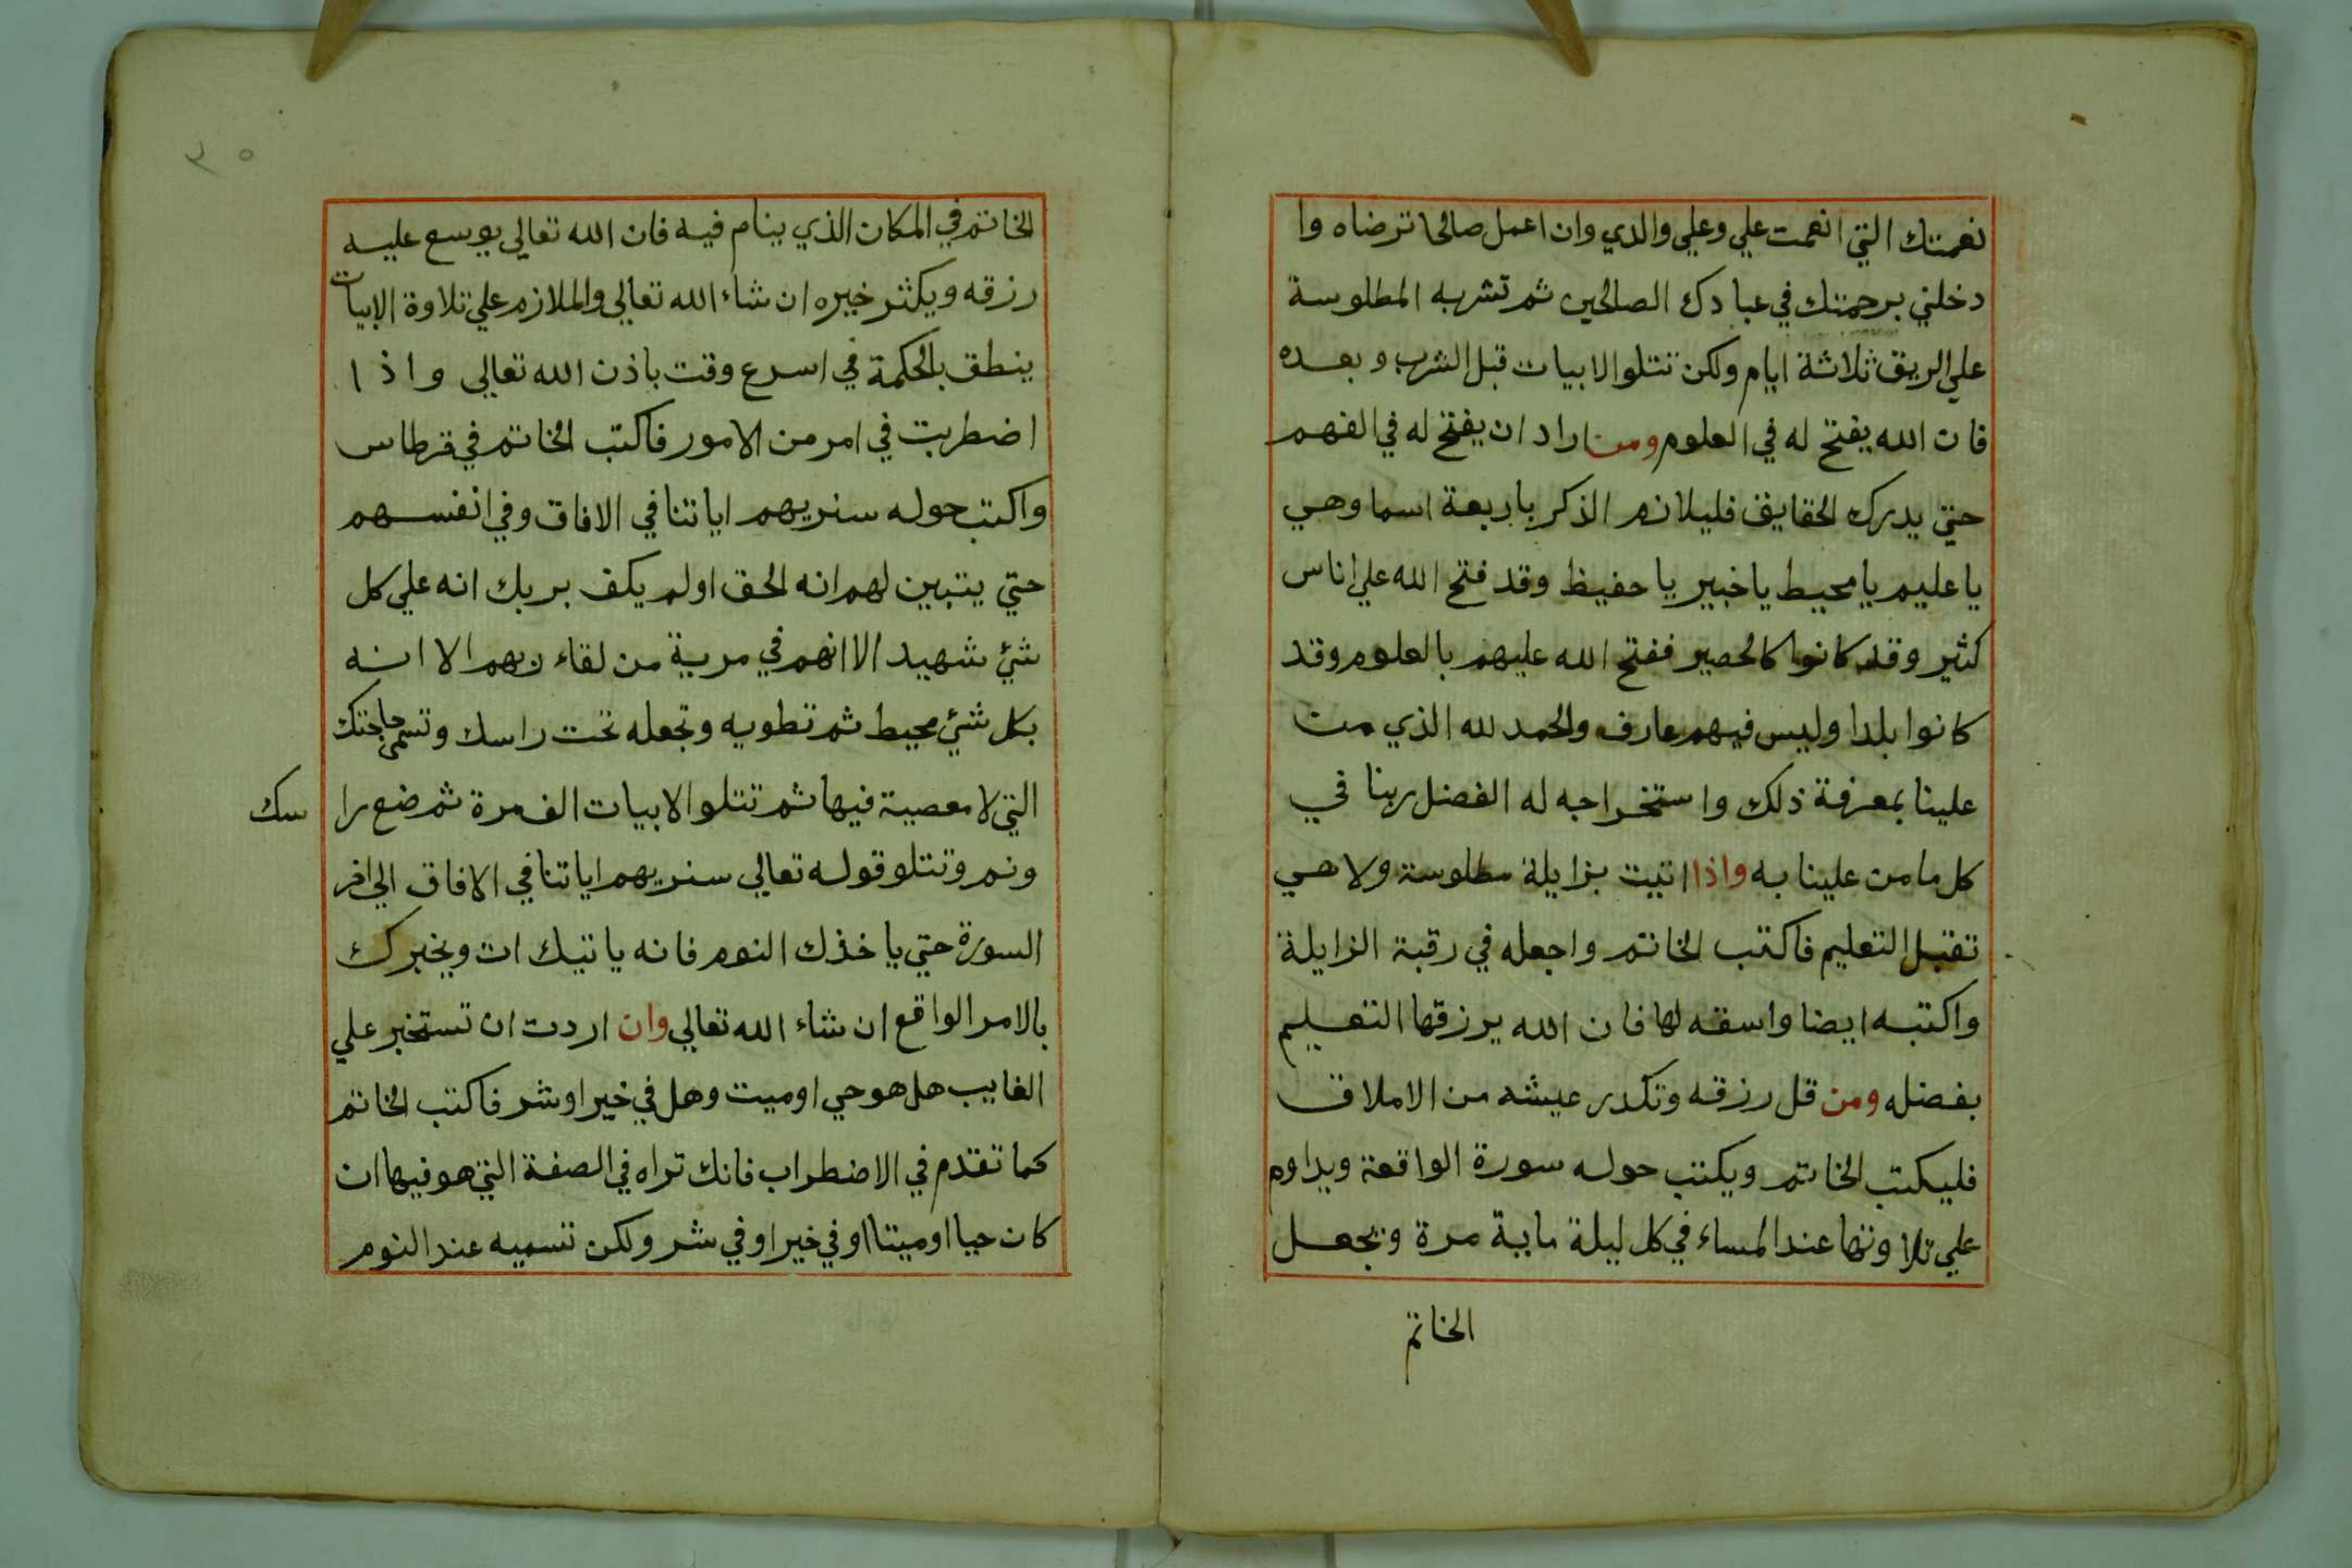 نعمتك التي انعمت علي وعلي والدي وان اعمل صالحا ترضاه وا
دخلني برحمتك في عبادك الصالحين ثم تشربه المطلوسة
علي الريق ثلاثة ايام ولكن تتلو الابيات قبل الشرب وبعده
فان الله يفتح له في العلوم ومن اراد ان يفتح له في الفهم
حتي يدرك الحقايق فليلازم الذكر باربعة اسما وهي
يا عليم يا محيط يا خبير يا حفيظ وقد فتح الله علي اناس
كثير وقد كانوا كالحصير ففتح الله عليهم بالعلوم وقد
كانوا بلدا وليس فيهم عارف والحمد لله الذي من
علينا بمعرفة ذلك واستخراجه له الفضل ربنا في
كل ما من علينا به واذا اتيت بزايلة مطلوسة ولا هي
تقبل التعليم فاكتب الخاتم واجعله في رقبة الزايلة
واكتبه ايضا واسقه لها فان الله يرزقها التعليم
بفضله ومن قل رزقه وتكدر عيشه من الاملاق
فليكتب الخاتم ويكتب حوله سورة الواقعة ويداوم
علي تلاوتها عند المساء في كل ليلة ماية مرة ويجعل
الخاتم
٣٥
الخاتم في المكان الذي ينام فيه فان الله تعالي يوسع عليه
رزقه ويكثر خيره ان شاء الله تعالي والملازم علي تلاوة الابيات
ينطق بالحكمة في اسرع وقت باذن الله تعالي واذا
اضطربت في امر من الامور فاكتب الخاتم في قرطاس
واكتب حوله سنريهم اياتنا في الافاق وفي انفسهم
حتي يتبين لهم انه الحق اولم يكف بربك انه علي كل
شئ شهيد الا انهم في مرية من لقاء ربهم الا انه
بكل شئ محيط ثم تطويه وتجعله تحت راسك وتسمي حاجتك
التي لا معصية فيها ثم تتلو الابيات الف مرة ثم ضع را سك
ونم وتتلو قوله تعالي سنريهم اياتنا في الافاق الي اخر
السورة حتي ياخذك النوم فانه ياتيك ات ويخبرك
بالامر الواقع ان شاء الله تعالي وان اردت ان تستخبر علي
الغايب هل هو حي او ميت وهل في خير او شر فاكتب الخاتم
كما تقدم في الاضطراب فانك تراه في الصفة التي هو فيها ان
كان حيا او ميتا او في خير او في شر ولكن تسميه عند النوم